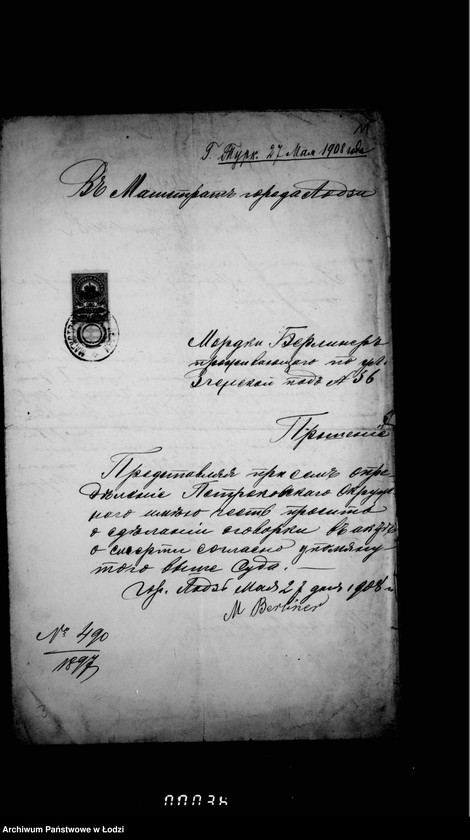 Г. Турк. 27 Мая 1908 года
Въ Магистратъ города Лодзи
Мордки Берлинеръ
проживающаго по ул.
Згерской подъ № 56
Прошеніе
Представляя при семъ опре-
дѣленіе Петроковскаго Окруж-
наго имѣю честь просить
о сдѣланіи оговорки въ актѣ
о смерти согласно упомяну-
того выше Суда.
Гор. Лодзь Мая 27 дня 1908 г.
M Berliner
№ 490
1897
00036
Archiwum Państwowe w Łodzi